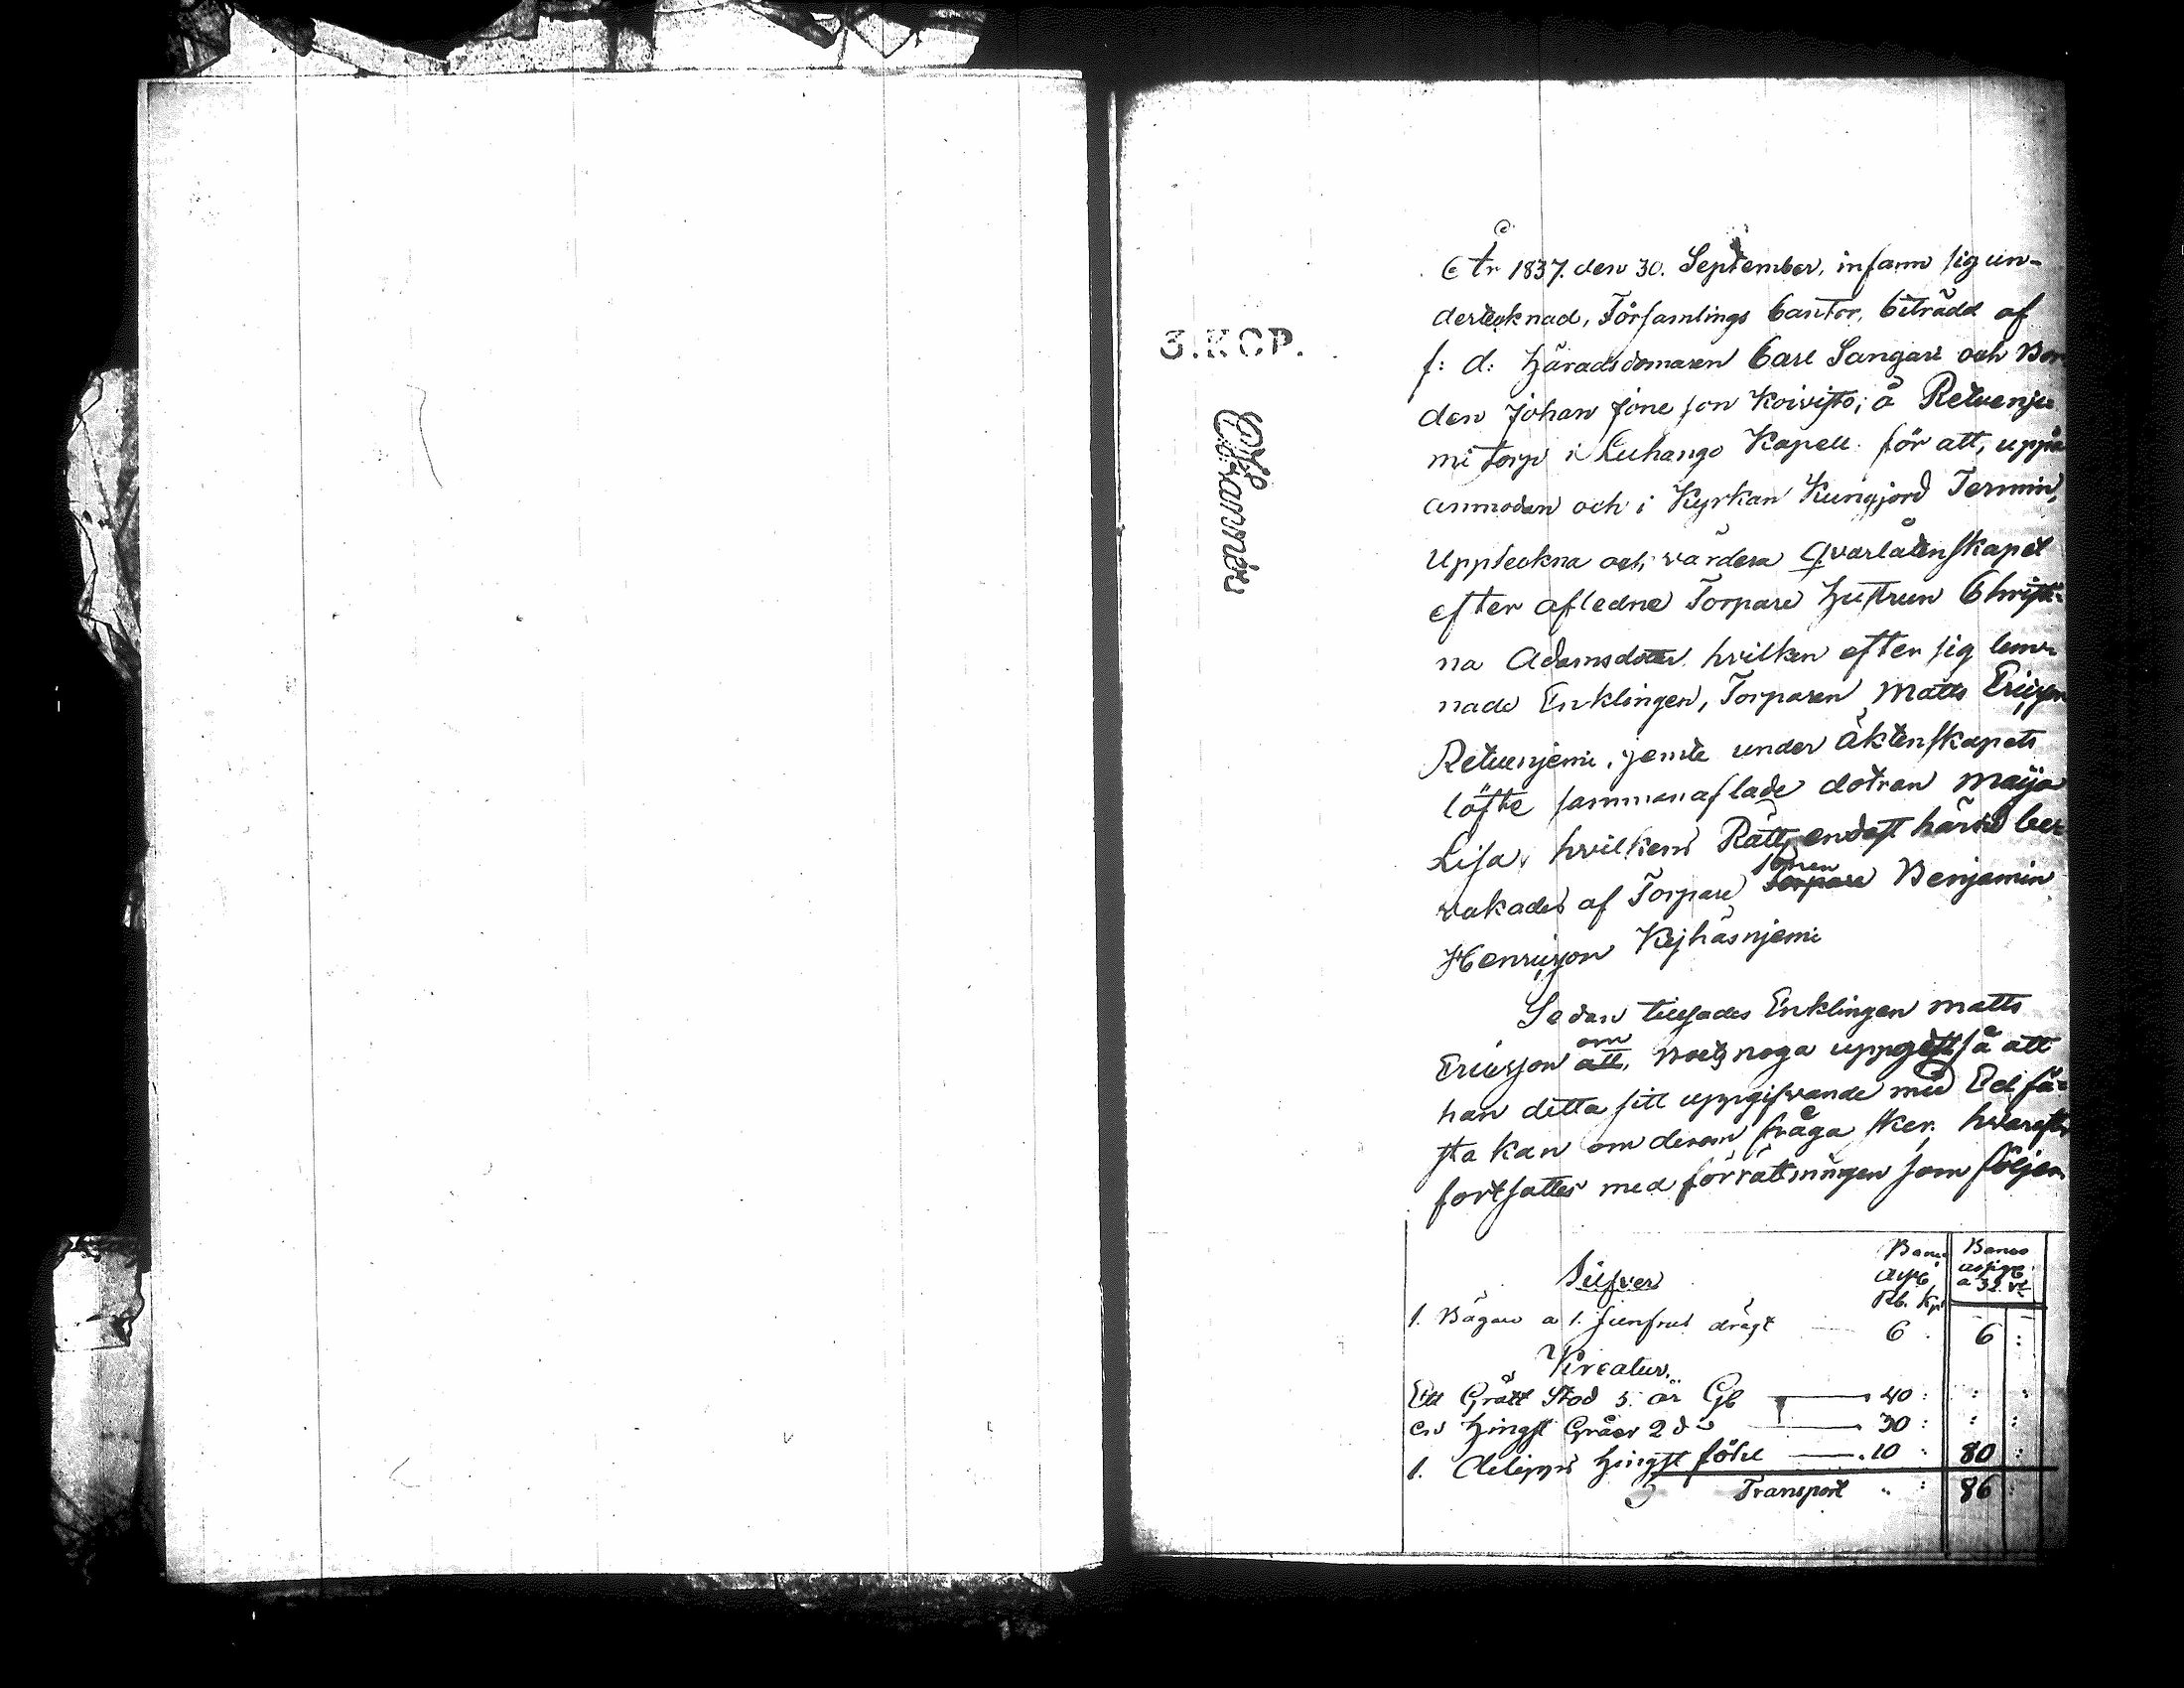 3.KOP.
År 1837. den 30. September, infann sig un-
dertecknad, Församlings Cantor, biträdd af
f: d: Häradsdomaren Carl Tangari och Bon
den Johan Jöne son Koivisto; å Retuenje
mi torp i Luhango Kapell för att, uppå
anmodan och i Kyrkan Kungjord Termin,
Upptekna och värdera Qvarlåtenskapet
efter afledne Torpare Hustrun Christi-
na Adamsdotter hvilken efter sig lem-
nade Enklingen, Torparen Matts Ericson
Retuenjemi, jemte under äktenskapets
löfte sammanaflade dotran Maija
Lisa, hvilkens Rätt endast härvid be-
vakades af Torpare sonen Torpare Benjamin
Henricson Kejhäsnjemi
Sedan tillsades Enklingen Matts
Ericsson om att, noga uppgift så att
han detta sitt uppgifvande med Ed fä-
sta kan om derom fråga sker; hvarefter
fortsattes med förrättningen som följer
Silfver
Banco
Assig.
Rb. Kp
Banco
assign.
a 32 rt
1. Bägare a 1. Jumfrus drägt 6 6 :
Kreatur.
Ett Grått Stod 5. år Gl 40 : : :
en Hingst Gråer 2 do 30 : : :
1. Hingst föhl 10 : 80 :
Transport " : 86 :